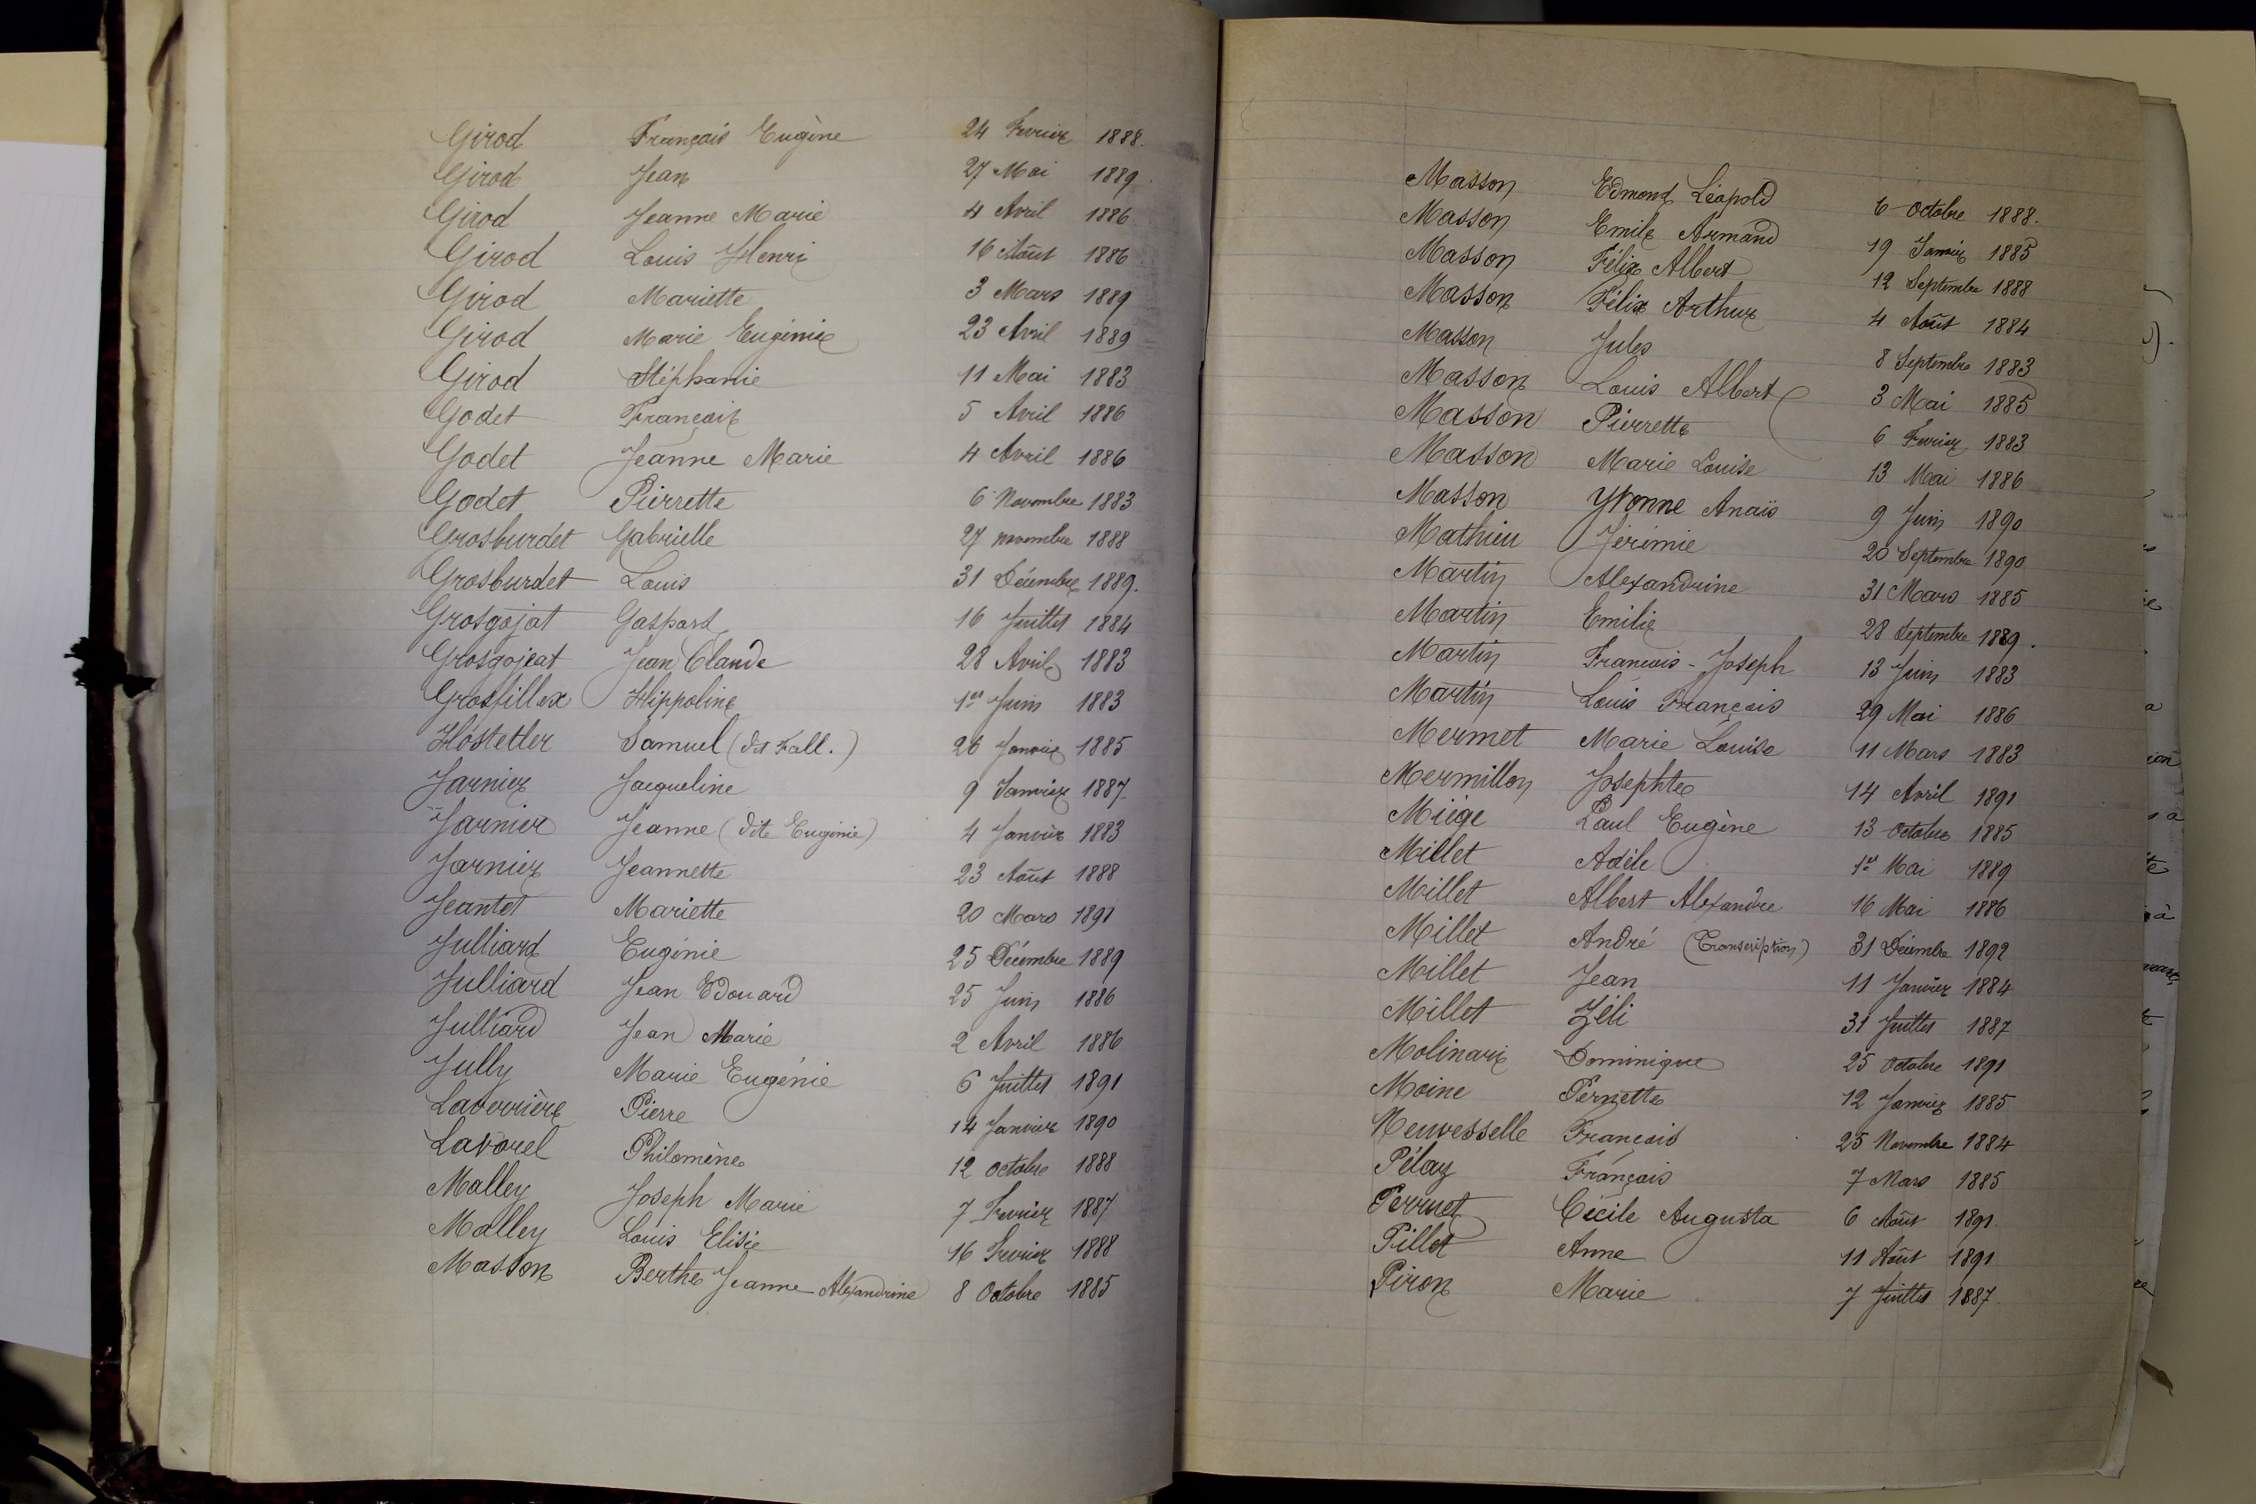 Girod François Eugène 24 Fevrier 1888.
Girod Jean 27 Mai 1889.
Girod Jeanne Marie 4 Avril 1886
Girod Louis Henri 16 Août 1886
Girod Mariette 3 Mars 1889
Girod Marie Eugénie 23 Avril 1889
Girod Stéphanie 11 Mai 1883
Godet François 5 Avril 1886
Godet Jeanne Marie 4 Avril 1886
Godet Pierrette 6 Novembre 1883
Grosburdet Gabrielle 27 novembre 1888
Grosburdet Louis 31 Décembre 1889.
Grosgojat Gaspard 16 Juillet 1884
Grosgojeat Jean Claude 28 Avril 1883
Grosfillex Hippoline 1er Juin 1883
Hostetler Samuel (dit Fall.) 26 Janvier 1885
Jarnier Jacqueline 9 Janvier 1887
Jarnier Jeanne (dite Eugénie) 4 Janvier 1883
Jarnier Jeannette 23 Août 1888
Jeantet Mariette 20 Mars 1891
Julliard Eugénie 25 Décembre 1889
Julliard Jean Edouard 25 Juin 1886
Julliard Jean Marie 2 Avril 1886
Jully Marie Eugénie 6 Juillet 1891
Laverrière Pierre 14 Janvier 1890
Lavorel Philomène 12 octobre 1888
Malley Joseph Marie 7 Fevrier 1887
Malley Louis Elisée 16 Fevrier 1888
Masson Berthe Jeanne Alexandrine 8 Octobre 1885
Masson Edmond Léopold 6 Octobre 1888.
Masson Emile Armand 19 Janvier 1885
Masson Félix Albert 12 Septembre 1888
Masson Félix Arthur 4 Août 1884
Masson Jules 8 Septembre 1883
Masson Louis Albert 3 Mai 1885
Masson Pierrette 6 Fevrier 1883
Masson Marie Louise 13 Mai 1886
Masson Yvonne Anaïs 9 Juin 1890
Mathieu Jérémie 20 Septembre 1890
Martin Alexandrine 31 Mars 1885
Martin Emilie 28 Septembre 1889.
Martin François-Joseph 13 Juin 1883
Martin Louis François 29 Mai 1886
Mermet Marie Louise 11 Mars 1883
Mermillon Josephte 14 Avril 1891
Miège Paul Eugène 13 octobre 1885
Millet Adèle 1er Mai 1889
Millet Albert Alexandre 16 Mai 1886
Millet André (Transcription) 31 Décembre 1892
Millet Jean 11 Janvier 1884
Millet Zéli 31 Juillet 1887
Molinari Dominique 25 octobre 1891
Moine Pernette 12 Janvier 1885
Neuvesselle François 25 Novembre 1884
Pélay François 7 Mars 1885
Perruet Cécile Augusta 6 Août 1891
Pillet Anne 11 Août 1891
Piron Marie 7 Juillet 1887